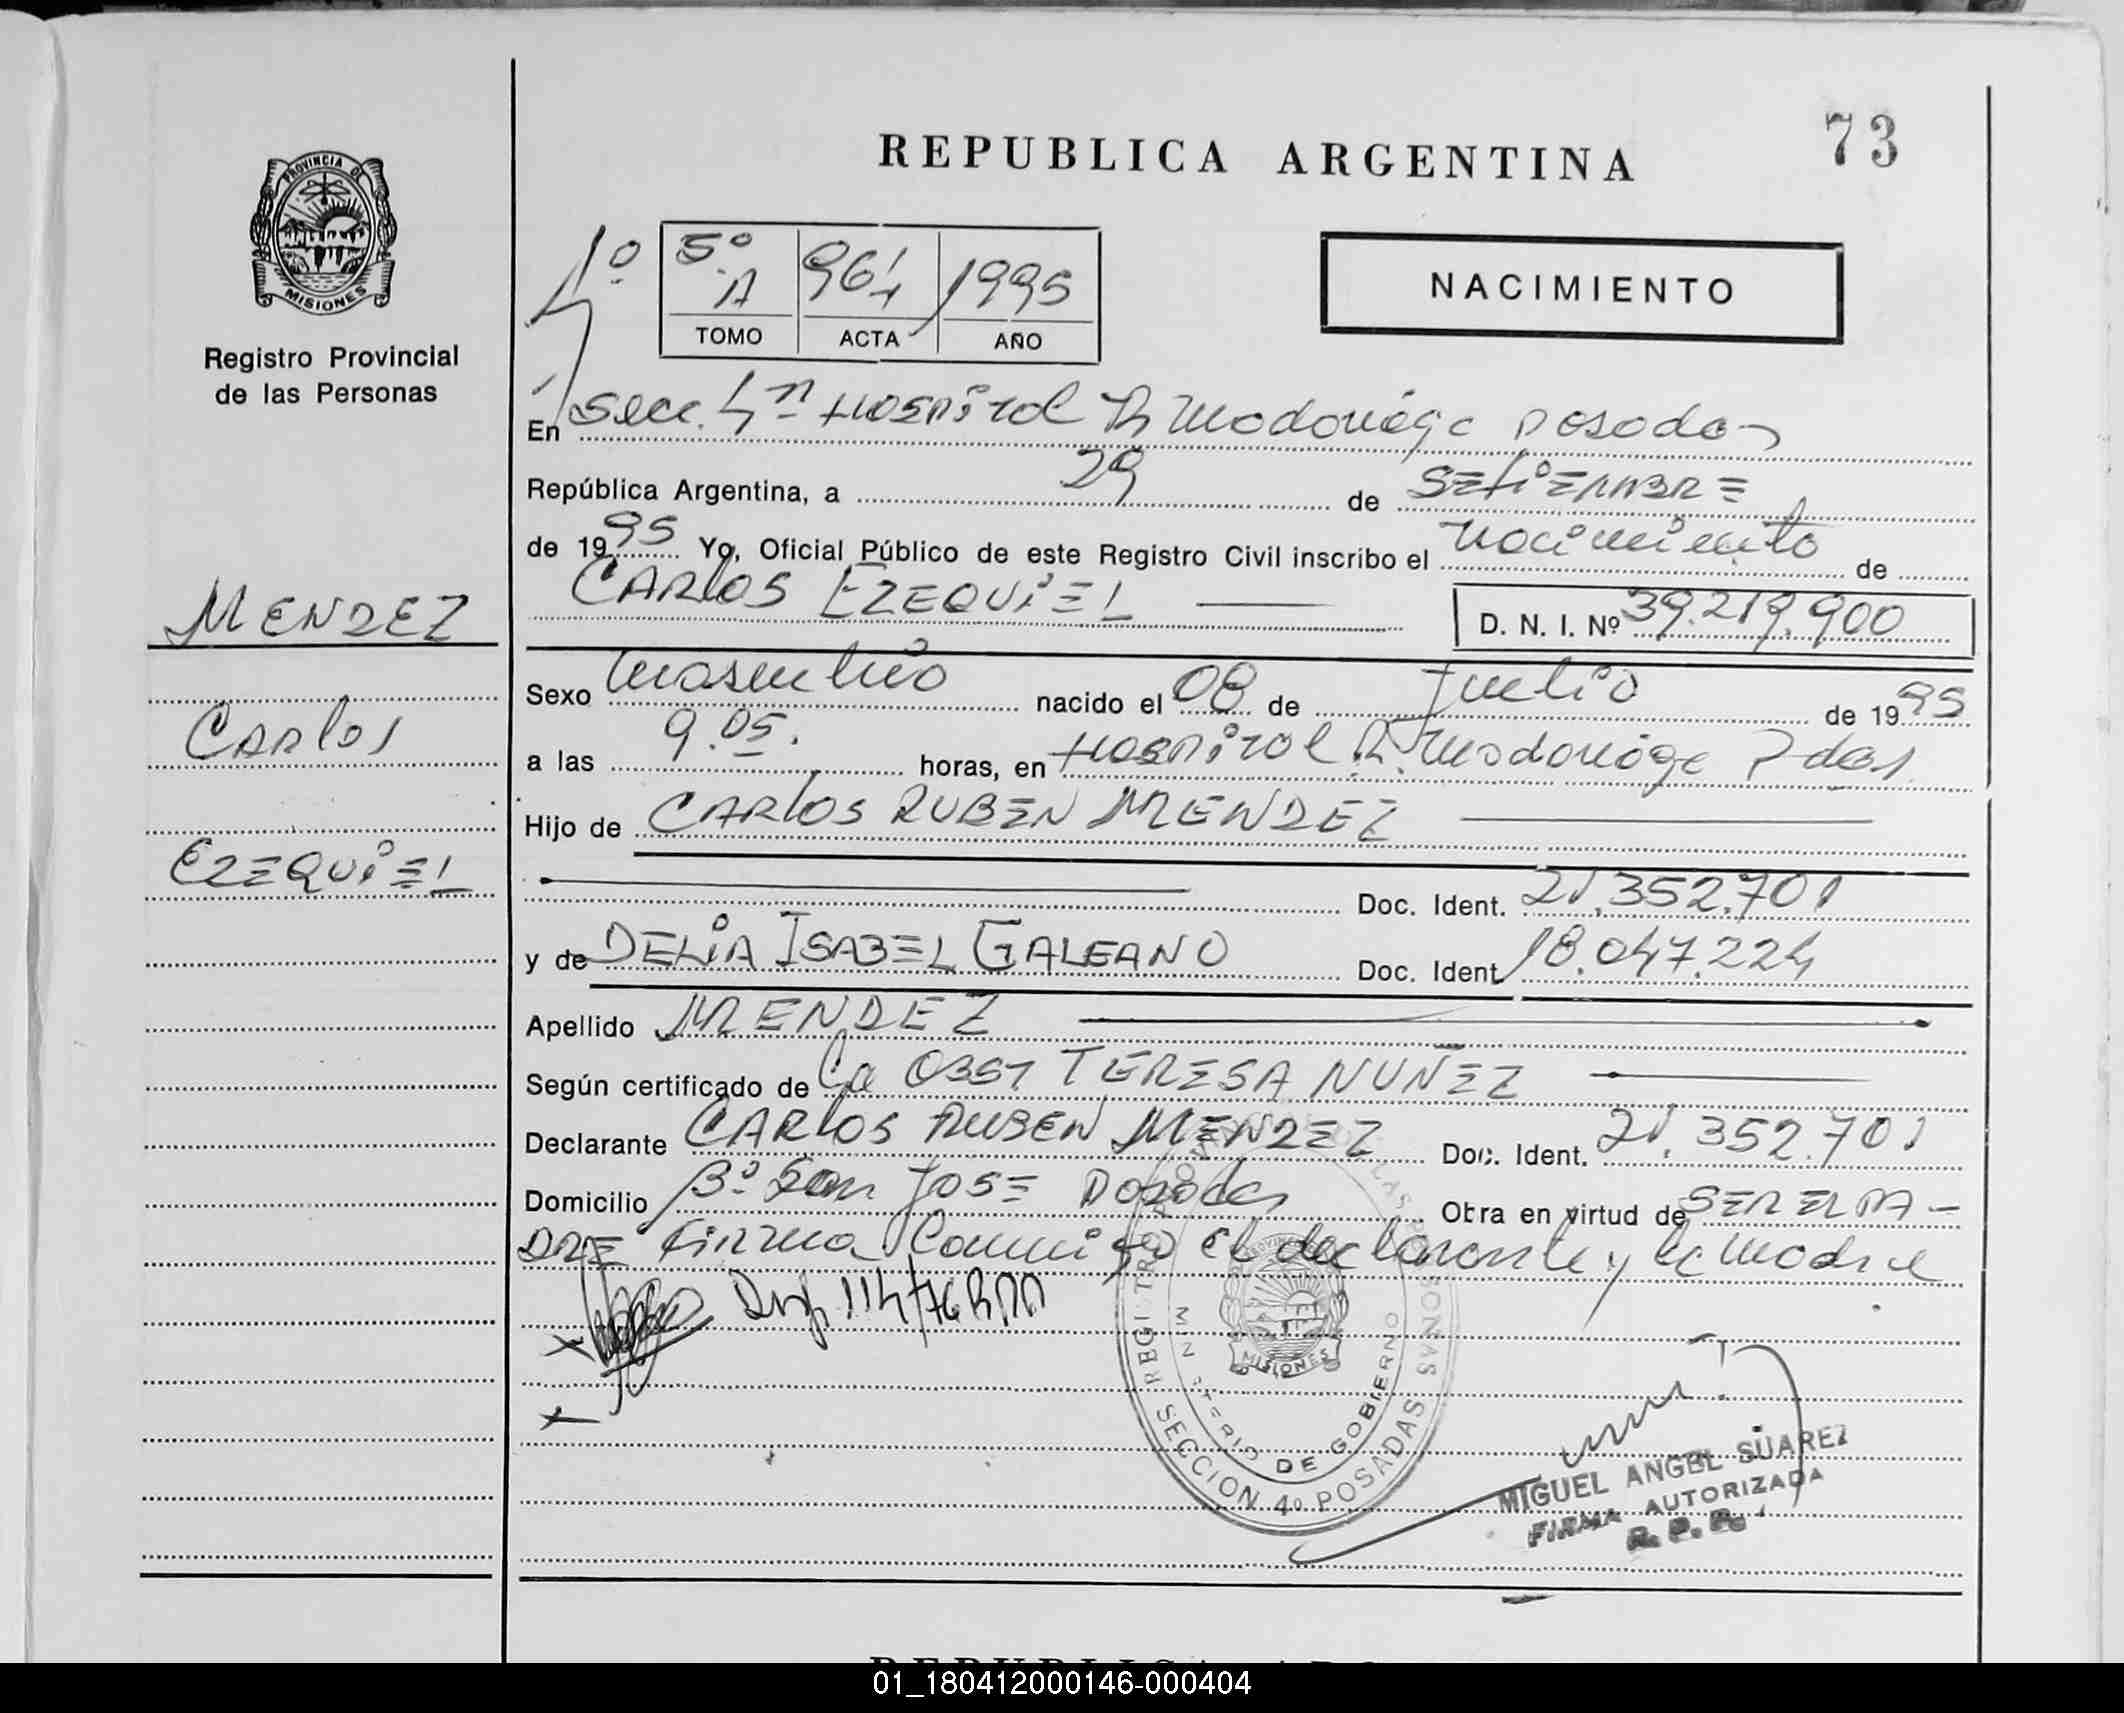 73
REPUBLICA ARGENTINA
PROVINCIA DE MISIONES
Registro Provincial
de las Personas
4º
5º A 964 1995
TOMO ACTA AÑO
NACIMIENTO
En Secc. 4ª Hospital R Madariaga Posadas
República Argentina, a 29 de SETIEMBRE
de 1995 Yo, Oficial Público de este Registro Civil inscribo el nacimiento de
CARLOS EZEQUIEL D. N. I. Nº 39.219.900
MENDEZ
Carlos
EZEQUIEL
Sexo masculino nacido el 08 de Julio de 1995
a las 9.05. horas, en Hospital R. Madariaga Pdas
Hijo de CARLOS RUBEN MENDEZ
Doc. Ident. 21.352.701
y de DELIA ISABEL GALEANO Doc. Ident 18.047.224
Apellido MENDEZ
Según certificado de la OBST TERESA NUÑEZ
Declarante CARLOS RUBEN MENDEZ Doc. Ident. 21.352.701
Domicilio Bº San JOSE Posadas Obra en virtud de SER EL PA-
DRE Firma Conmigo el declarante y la madre
Disp. 114/76 RPP
REGISTRO PROVINCIAL DE LAS PERSONAS
MINISTERIO DE GOBIERNO
MISIONES
SECCION 4º POSADAS
MIGUEL ANGEL SUAREZ
FIRMA AUTORIZADA
R. P. P.
01_180412000146-000404